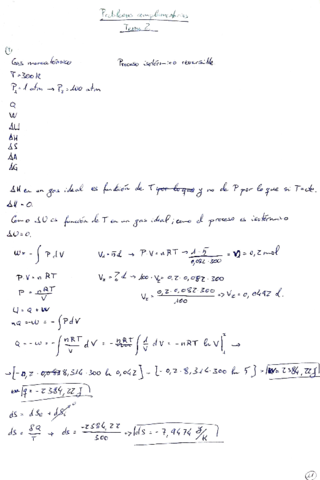 Problemas complementarios
Tema 2
①
Gas monoatómico Proceso isotérmico reversible
T = 300 K
P₁ = 1 atm → P₂ = 100 atm
Q
W
ΔU
ΔH
ΔS
ΔA
ΔG
ΔH en un gas ideal es función de T y no de P por lo que si T = cte.
ΔH = 0.
Como ΔU es función de T en un gas ideal, como el proceso es isotérmico
ΔU = 0.
W = - ∫ P dV V₁ = 5 L → P·V = nRT → 1·5 / 0,082·300 = n = 0,2 mol
P·V = nRT V₂ = ? L → 100·V₂ = 0,2·0,082·300
P = nRT / V V₂ = 0,2·0,082·300 / 100 → V₂ = 0,0492 L.
Q = -W = - ∫ nRT/V dV = -nRT ∫ d/V dV = -nRT ln V ]₁² →
→ [-0,2·8,314·300 ln 0,042] - [-0,2·8,314·300 ln 5] = W = 2384,22 J
q = -2384,22 J
dS = δQ / T → dS = -2384,22 / 300 → dS = -7,9474 J/K